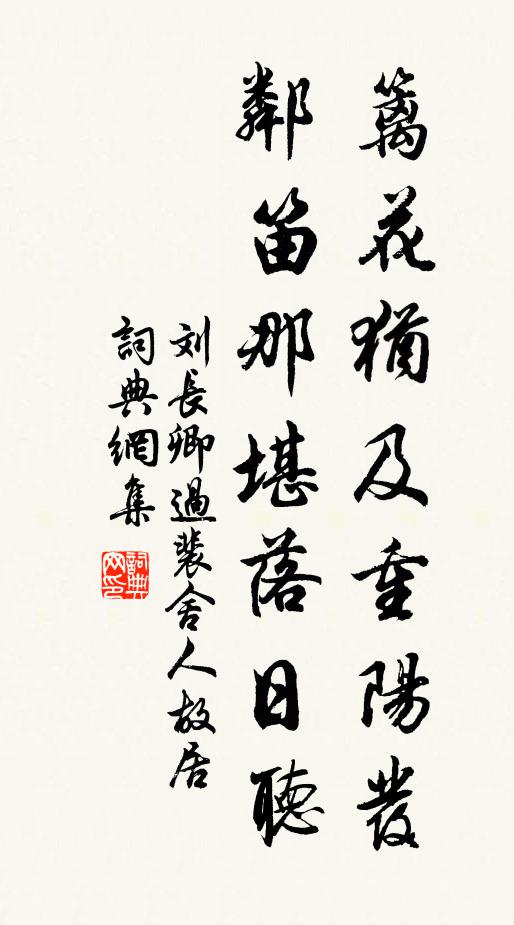 籬花猶及重陽發
鄰笛那堪落日聽
刘長卿過裴舍人故居
詞典網集
詞典网印